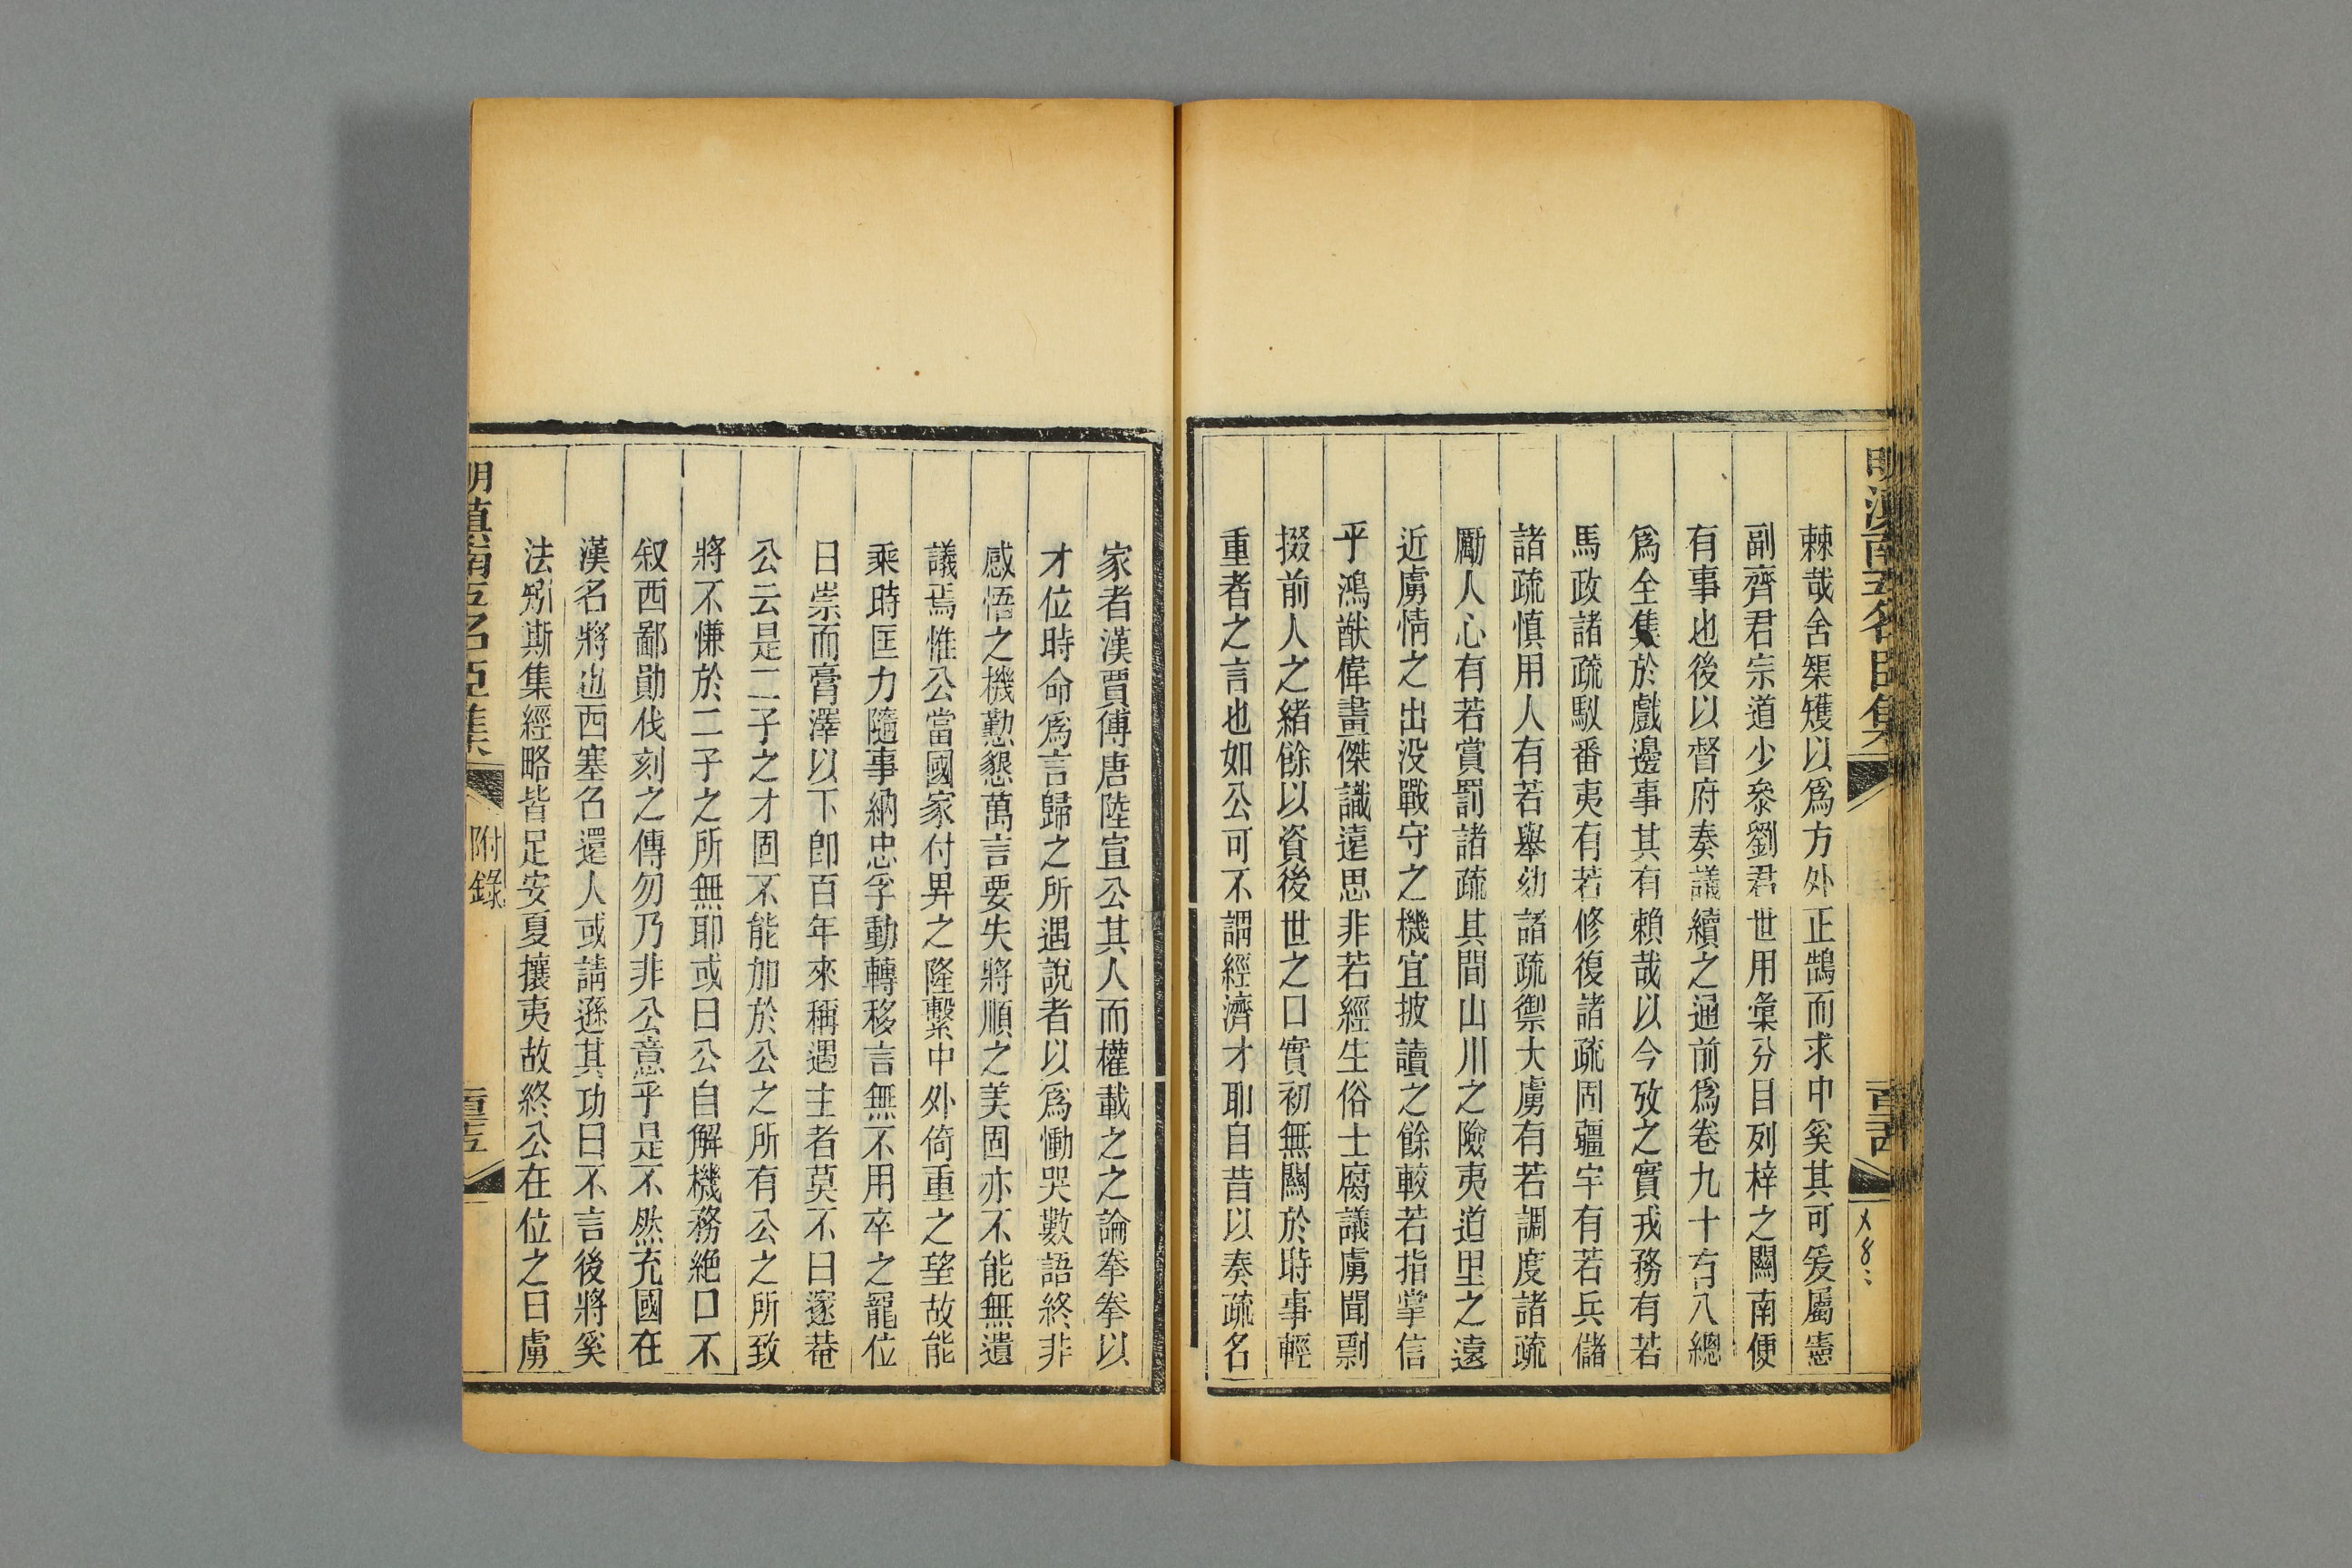 明滇南五名臣集
棘哉舍榘矱以爲方外正鵠而求中奚其可爰屬憲
副齊君宗道少叅劉君世用彙分目列梓之關南便
有事也後以督府奏議續之通前爲卷九十有八總
爲全集於戲邊事其有賴哉以今攷之實戎務有若
馬政諸疏馭番夷有若修復諸疏固疆宇有若兵儲
諸疏慎用人有若舉劾諸疏禦大虜有若調度諸疏
勵人心有若賞罰諸疏其間山川之險夷道里之遠
近虜情之出没戰守之機宜披讀之餘較若指掌信
乎鴻猷偉畫傑識遠思非若經生俗士腐議虜聞剽
掇前人之緒餘以資後世之口實初無關於時事輕
重者之言也如公可不謂經濟才耶自昔以奏疏名
家者漢賈傅唐陸宣公其人而權載之之論拳拳以
才位時命爲言歸之所遇說者以爲慟哭數語終非
感悟之機懃懇萬言要失將順之美固亦不能無遺
議焉惟公當國家付畀之隆繫中外倚重之望故能
乘時匡力隨事納忠孚動轉移言無不用卒之寵位
日崇而膏澤以下卽百年來稱遇主者莫不曰邃菴
公云是二子之才固不能加於公之所有公之所致
將不慊於二子之所無耶或曰公自解機務絶口不
叙西鄙勛伐刻之傳勿乃非公意乎是不然充國在
漢名將也西塞名還人或請遜其功曰不言後將奚
法矧斯集經略皆足安夏攘夷故終公在位之日虜
明滇南五名臣集
附錄